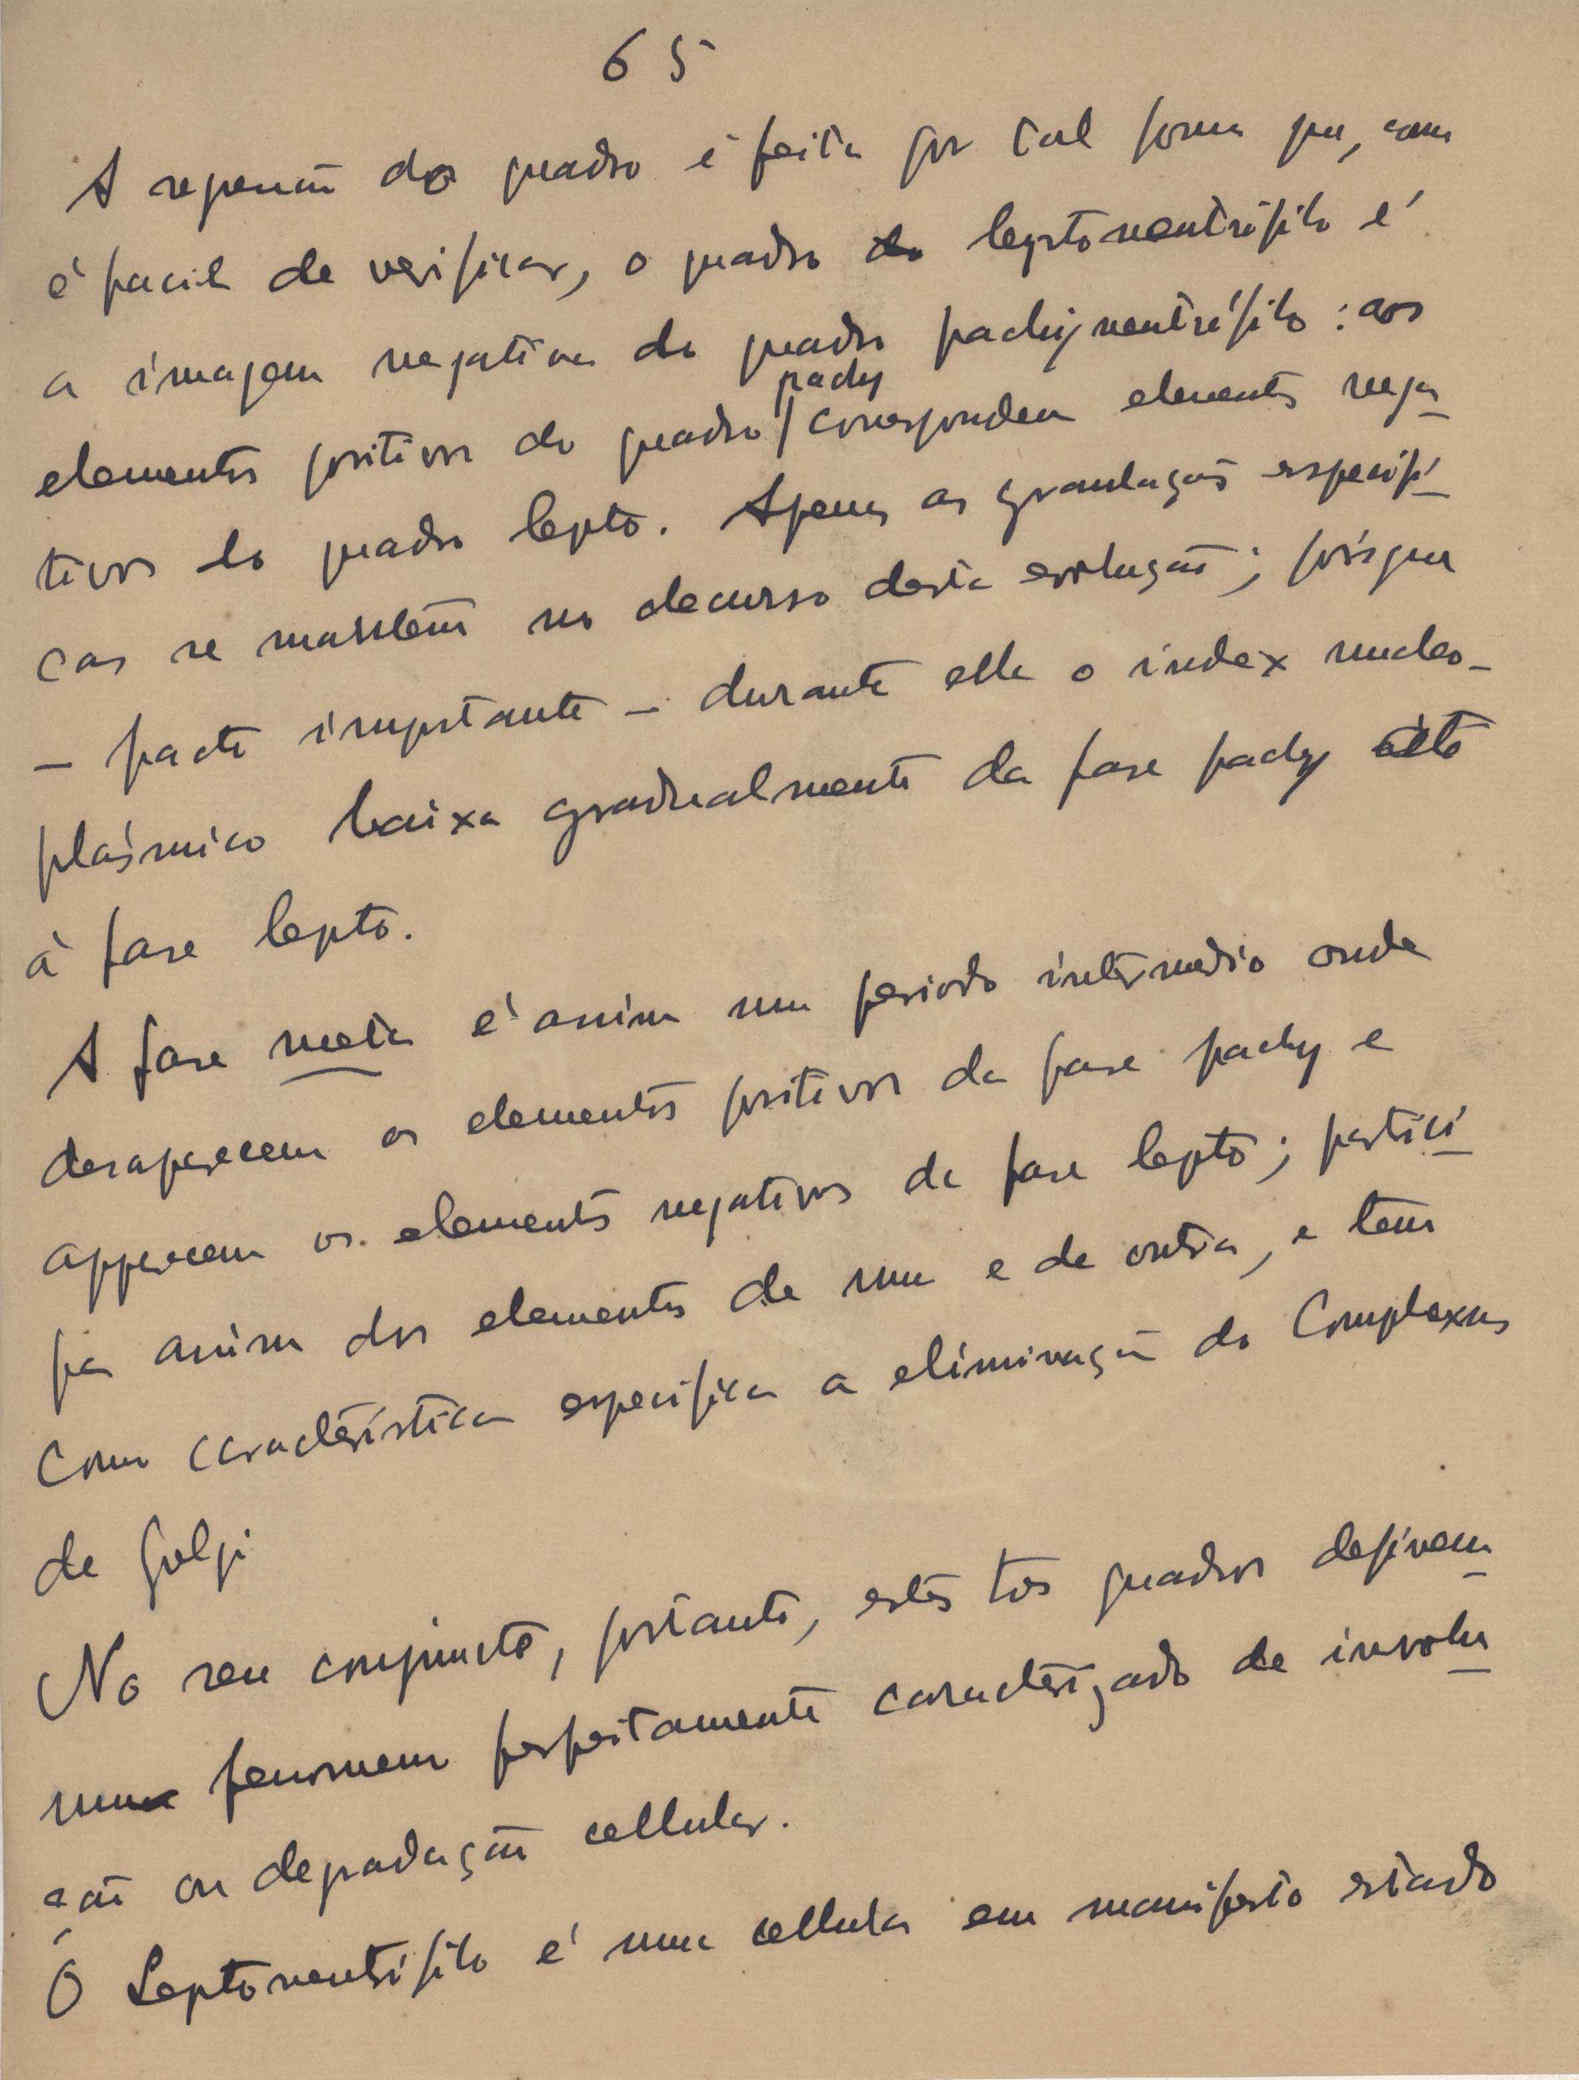 65
A do quadro é feita por tal forma que, como
é facil de verificar, o quadro do leptoneutrófilo é
a imagem negativa do quadro pachyneutrófilo : aos
elementos positivos do quadro pachy correspondem elementos nega
tivos do quadro lepto. Apenas as granulações especifi
cas se mantêm no decurso desta evolução; porque
– facto importante – durante ella o index nucleo-
plásmico baixa gradualmente da fase pachy até
à fase lepto.
A fase meta é assim um periodo intermedio onde
desaparecem os elementos positivos da fase pachy e
apparecem os elementos negativos da fase lepto; partici
pa assim dos elementos de uma e de outra, e tem
como característica especifica a eliminação do Complexus
de Golgi
No seu conjuncto, portanto, estes tres quadros definem
um fenomeno perfeitamente caracterizado de involu
ção ou degradação cellular.
O Leptoneutrófilo é uma cellula em manifesto estado